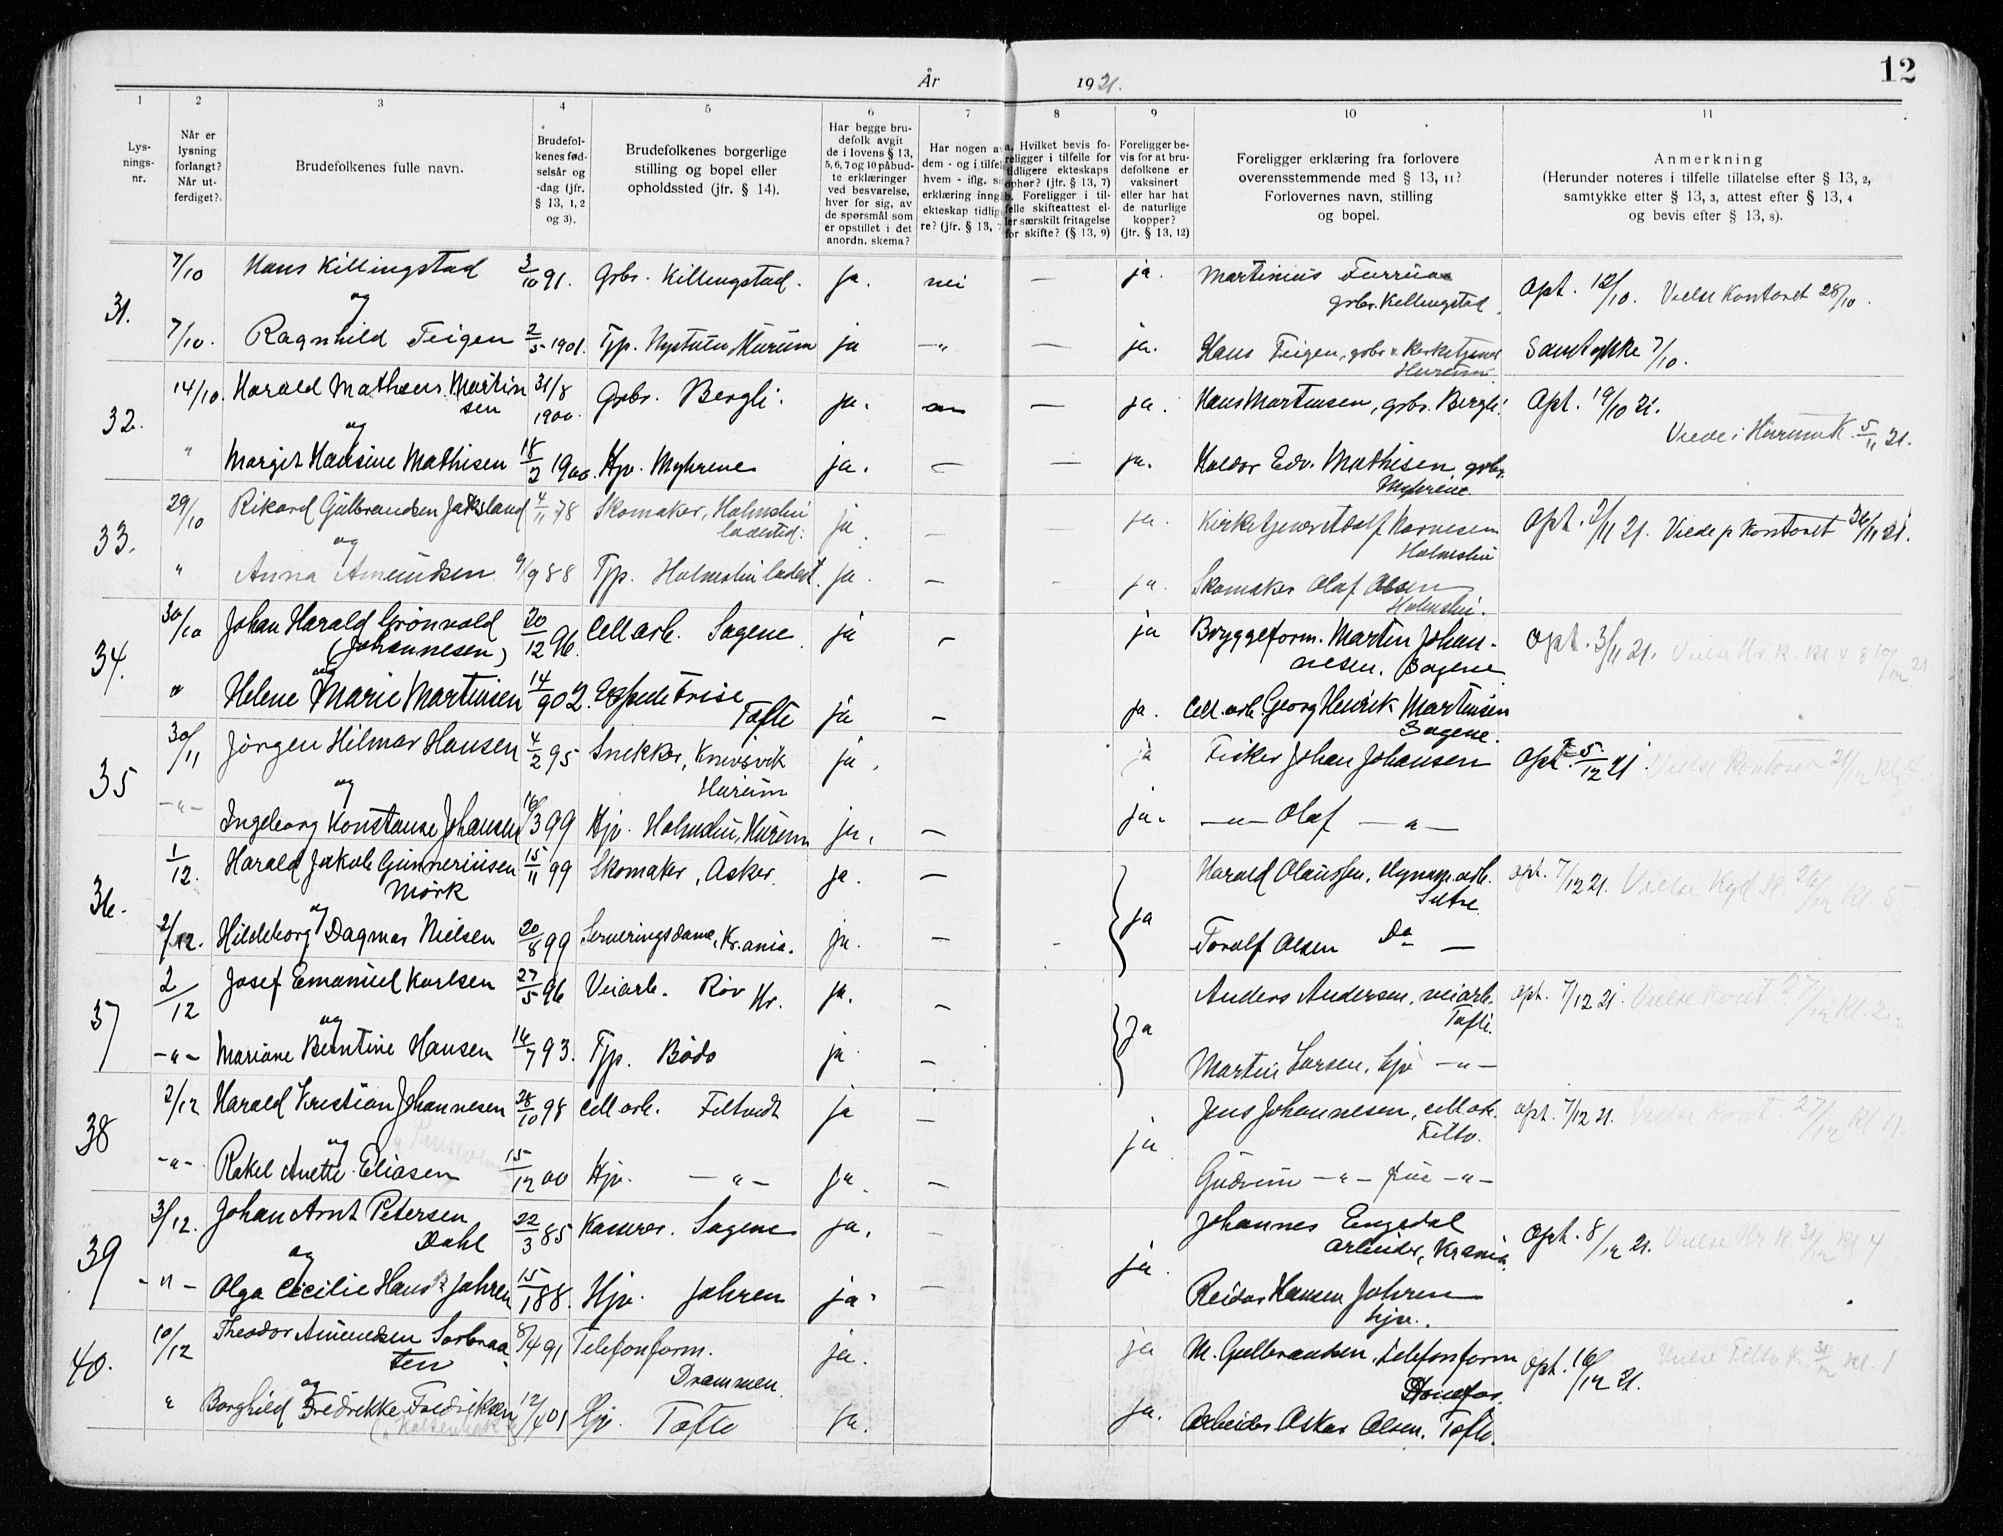 12
År 1921.
1 2 3 4 5 6 7 8 9 10 11
Lys-
nings-
nr.
Når er
lysning
forlangt?
Når ut-
ferdiget?
Brudefolkenes fulle navn.
Brudefol-
kenes fød-
selsår og
-dag (jfr.
§ 13, 1, 2
og 3).
Brudefolkenes borgerlige
stilling og bopel eller
opholdssted (jfr. § 14).
Har begge bru-
defolk avgit
de i lovens § 13,
5, 6, 7 og 10 påbud-
te erklæringer
ved besvarelse,
hver for sig, av
de spørsmål som
er opstillet i det
anordn. skema?
Har nogen av
dem - og i tilfel
hvem - iflg. si
erklæring inng
ekteskap tidlig
re? (jfr. § 13, 7
a. Hvilket bevis fo-
religger i tilfelle for
tidligere ekteskaps
ophør? (jfr. § 13, 7)
b. Foreligger i til-
felle skifteattest el-
ler særskilt fritagelse
for skifte? (§ 13, 9)
Foreligger be-
vis for at bru-
defolkene er
vaksinert
eller har hat
de naturlige
kopper?
(jfr. § 13, 12)
Foreligger erklæring fra forlovere
overensstemmende med § 13, 11?
Forlovernes navn, stilling
og bopel.
Anmerkning
(Herunder noteres i tilfelle tillatelse efter § 13, 2,
samtykke efter § 13, 3, attest efter § 13, 4
og bevis efter § 13, 8).
31. 7/10 Hans Killingstad 3/10 91. Grbr. Killingstad. ja. nei — ja. Martinius grbr. Killingstad. Opt. 12/10. Vielse Kontoret 28/10.
og
7/10. Ragnhild Teigen 2/5 1901. Tjp. Nystuen Hurum ja -"- — ja. Hans Teigen, grbr. & Kirketjener Hurum. Samtykke 7/10.
32. 14/10. Harald Mathæus Martinsen 31/8 1900. Grbr. Bergli. ja. — ja. Hans Martinsen, grbr. Bergli. Opt. 19/10 21.
og
Viede i Hurum K. 5/11 21.
" Margit Hansine Mathisen 18/2 1900. Hjv. Myhrene ja. — — ja. Haldor Edv. Mathisen grbr. Myhrene.
33. 29/10 Rikard Gulbrandsen Jaksland 4/11 78 Skomaker, Holmsbu ladested. ja — — ja. Kirketjener Adolf Holmsbu Opt. 2/11 21. Viede p Kontoret 26/11 21.
og
" Anna Amundsen 9/9 88 Tjp. Holmsbu ladest. ja. — - ja. Skomaker Olaf Olsen Holmsbu.
34. 30/10 Johan Harald Grönvold (Johannesen) 20/12 96. Cell arb. Sagene ja — ja Bryggeform. Martin Johannesen. Sagene Opt. 3/11 21. Vielse Hr K. 10/12 21
og
" Helene Marie Martinsen 14/9 02. Expeditrise Tofte ja — ja. Cell. arb. Georg Henrik Martinsen Sagene.
35 30/11 Jörgen Hilmar Hansen 4/2 95 Snekker, Knivsvik Hurum ja. ja Fisker Johan Johansen Opt. 5/12 21. Vielse Kontoret
og
-"- Ingeborg Konstanse Johansen 16/3 99 Hjv. Holmsbu, Hurum ja. — ja. —"— Olaf —"—
36. 1/12. Harald Jakob Gunneriusen Mörk 15/11 99 Skomaker, Asker. ja. — ja Harald Olaussen, dynam. arb. Sætre Opt. 7/12 21. Vielse Kyd K. 26/12 kl. 5
og
2/12. Hildeborg Dagmar Nielsen 20/8 99 Serveringsdame, Kr.ania. ja. — - Toralf Olsen Do —
37 2/12 Josef Emanuel Karlsen 27/5 96 Veiarb. Röv Hr. ja. — ja Anders Andersen, veiarb. Tofte. Opt. 7/12 21. Vielse Kont 27/12 kl. 2.
og
-"- Mariane Berntine Hansen 16/7 93. Tjp. Bödö ja — Martin Larsen, hjv —"—
38 2/12 Harald Kristian Johannesen 28/10 98 Cell arb. Filtvedt ja — ja Jens Johannesen, cell ab. Filtv. Opt. 7/12 21. Vielse Kont 27/12 kl.
og
-"- Rakel Anette Eliasen 15/12 00 Hjv. —"— ja. — Gudrun —"— frue —"—
39 3/12. Johan Arnt Petersen Dahl 22/3 85 Kasserer. Sagene ja. — ja. Johannes Engedal arbeider, Kr.ania. Opt. 8/12 21. Vielse Hr K. 31/12 kl 4
og
-"- Olga Cecilie Hansd. Jahren 15/1 88. Hjv. Jahren ja. — Reidar Hansen Jahren hjv.
40. 10/12 Theodor Amundsen Sorbraaten 8/4 91 Telefonform. Drammen. ja. ja M. Gulbrandsen, Telefonform Hönefos. Opt. 16/12 21. Vielse Filtv. K. 31/12 kl. 1
og
" Borghild Fredrikke Fredriksen 12/4 01 Hjv. Tofte ja. ja. Arbeider Oskar Olsen. Tofte.